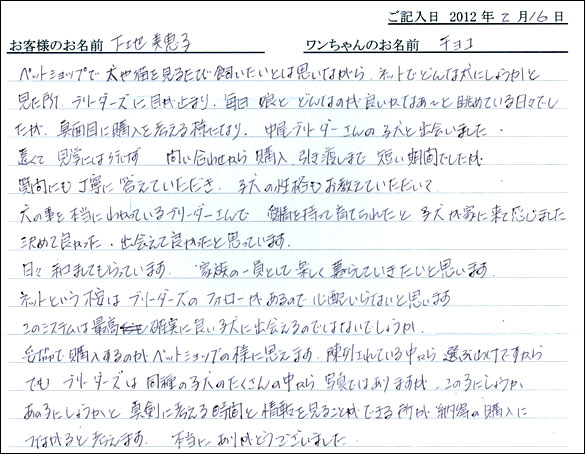 ご記入日 2012年 2月16日
お客様のお名前 下地 美恵子 ワンちゃんのお名前 チョコ
ペットショップで 犬や猫を見るたび飼いたいとは思いながら、ネットでどんな犬にしようかと
見た所 ブリーダーズに目が止まり、毎日 娘と どんなのが良いかなあ〜と眺めている日々でし
たが、真面目に購入を考える様になり、中尾ブリーダーさんの子犬と出会いました。
遠くて 見学には行けず 問い合わせから 購入 引き渡しまで 短い期間でしたが
質問にも丁寧に 答えていただき、子犬の性格もお教えていただいて
犬の事を本当に われているブリーダーさんで 愛情を持って育てられたと 子犬が家に来て感じました
決めて良かった・出会えて良かったと思っています。
日々 和ませてもらっています。 家族の一員として楽しく暮らしていきたいと思います。
ネットという不安は ブリーダーズの フォローがあるので 心配いらないと思います
このシステムは最高 確実に良い子犬に出会えるのではないでしょうか。
妥協で購入するのが ペットショップの様に思えます。陳列されている中から 選ぶわけですから
でも ブリーダーズは 同種の子犬のたくさんの中から 写真ではありますが、この子にしようか
あの子にしようかと 真剣に考える時間と 情報を見ることができる所が 納得の購入に
つながると考えます。 本当に ありがとうございました。